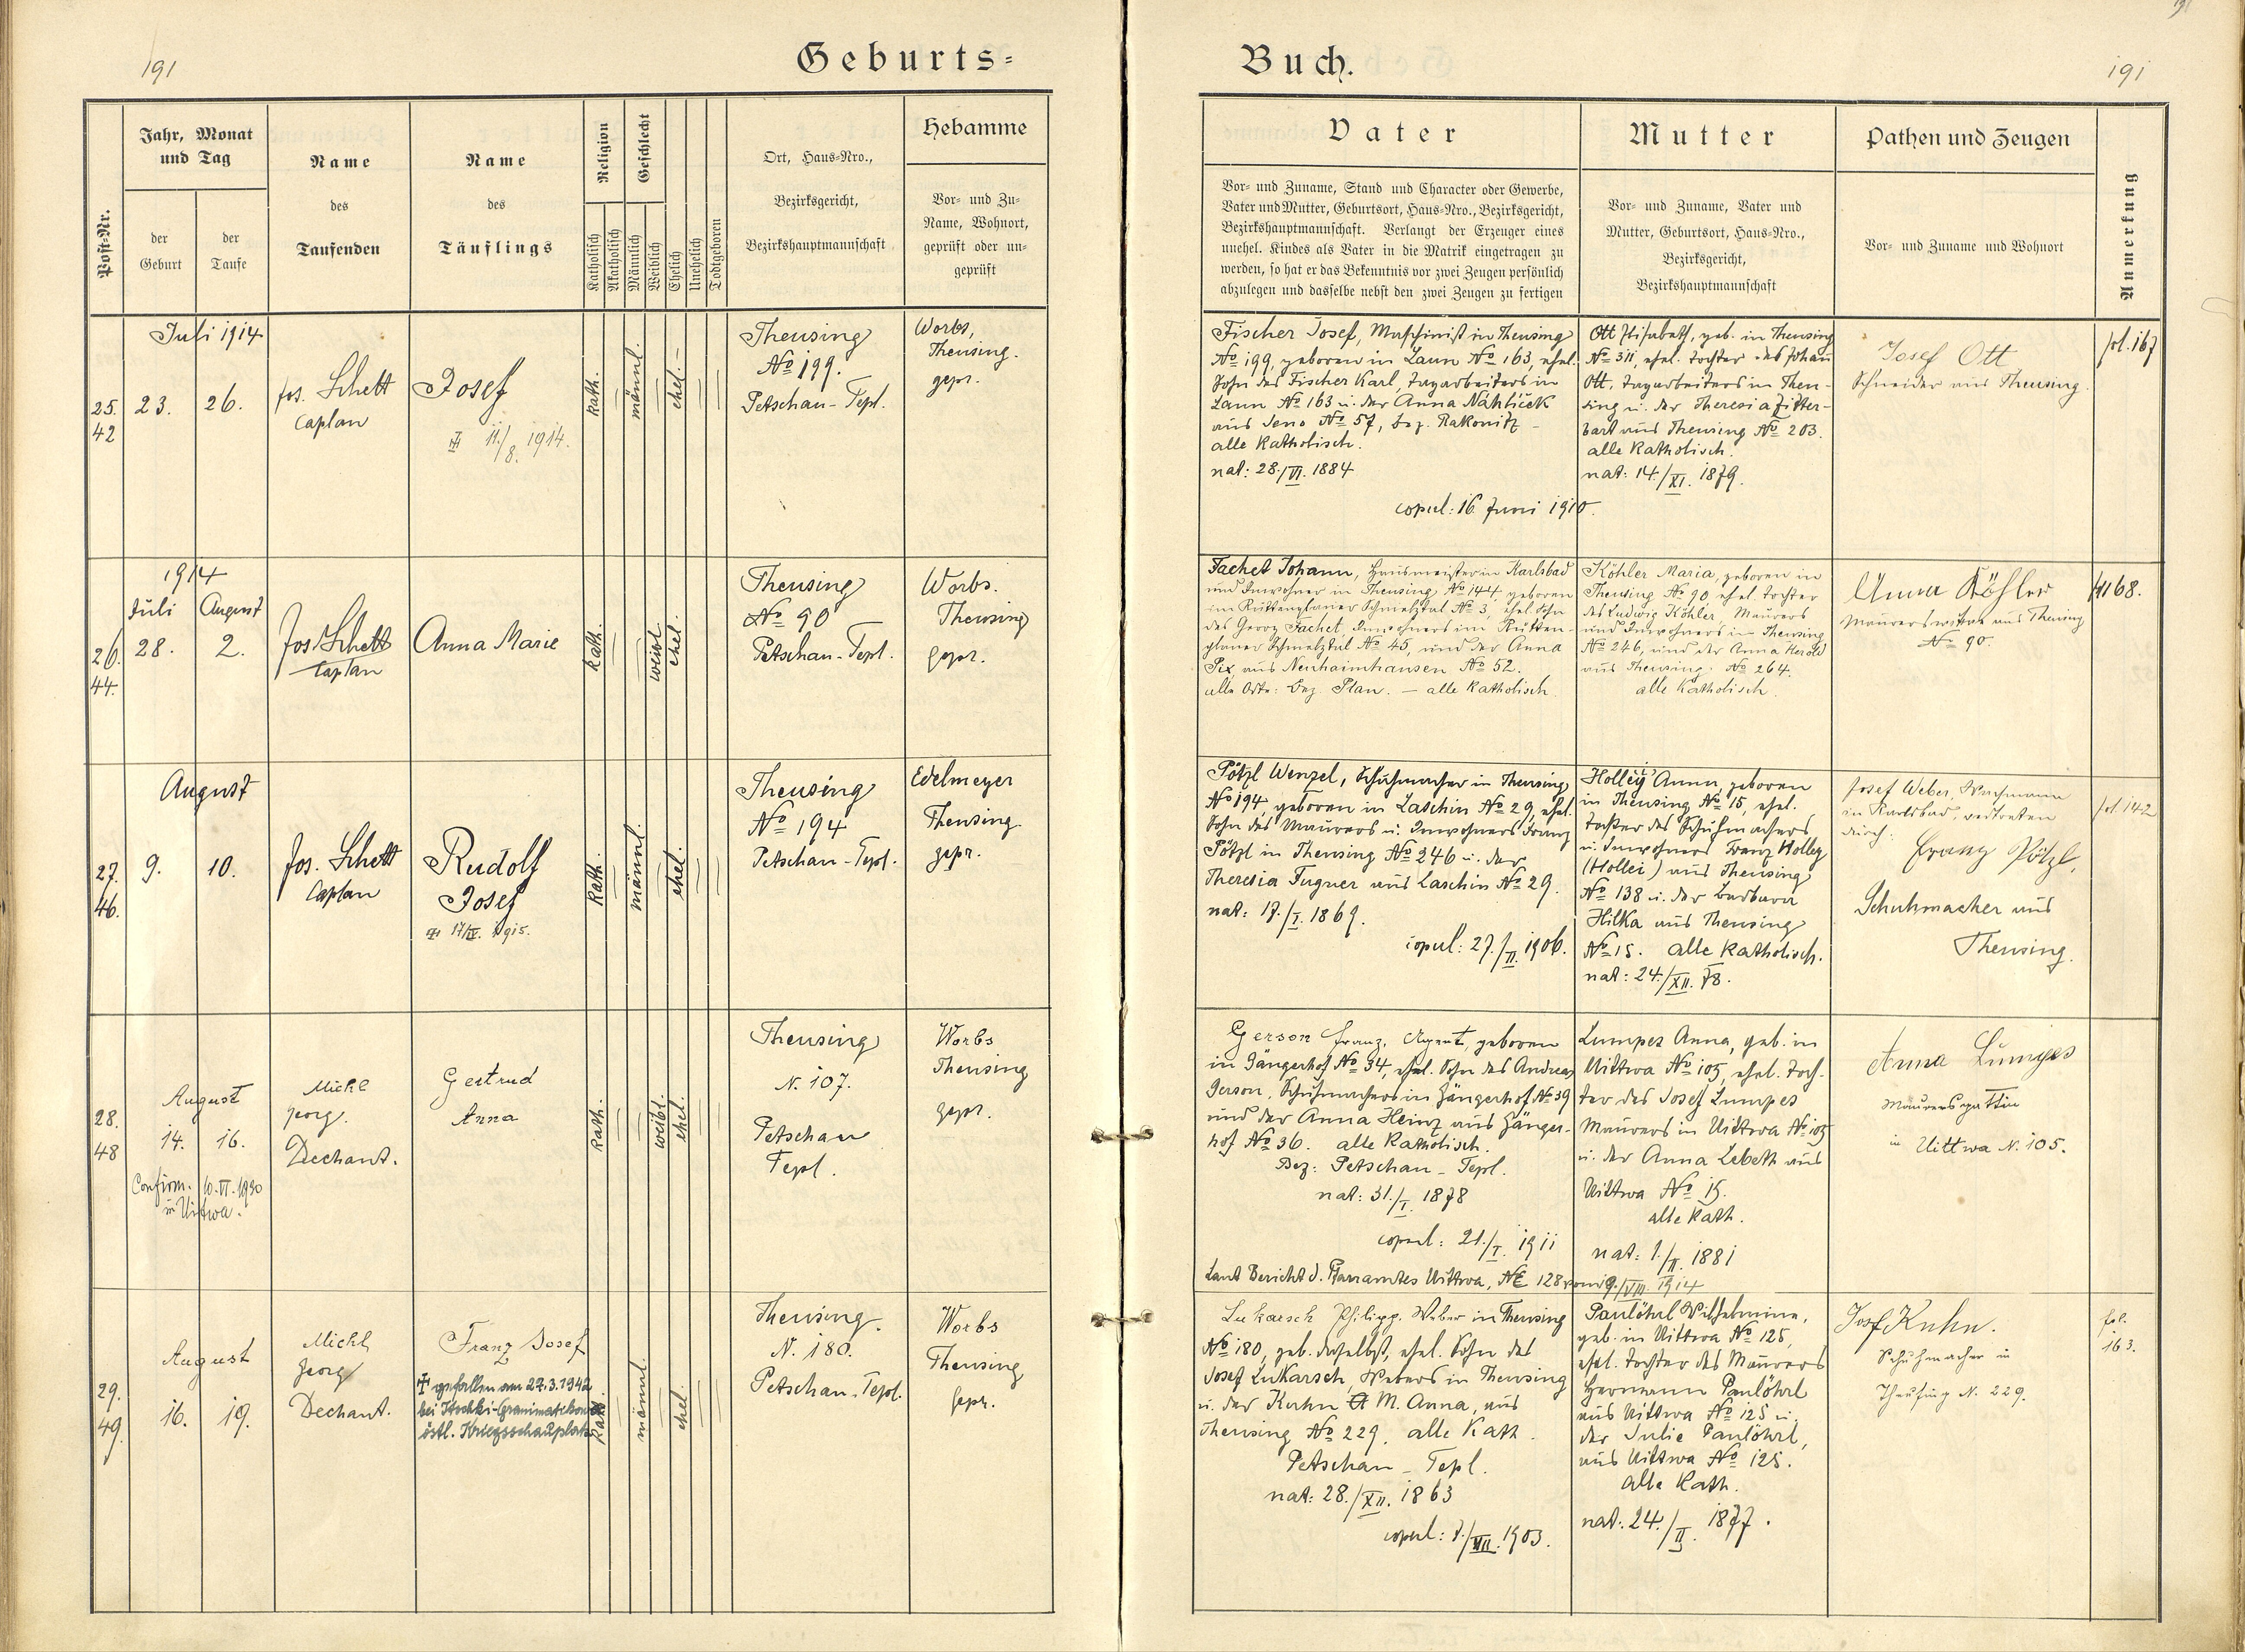 191
Geburts=
Buch.
191
Post-Nr.
Jahr, Monat
und Tag
der
Geburt
der
Taufe
Name
des
Taufenden
Name
des
Täuflings
Religion
Katholisch
Akatholisch
Geschlecht
Männlich
Weiblich
Ehelich
Unehelich
Todtgeboren
Ort, Haus=Nro.,
Bezirksgericht,
Bezirkshauptmannschaft
Hebamme
Vor= und Zu=
Name, Wohnort,
geprüft oder un=
geprüft
Vater
Vor= und Zuname, Stand und Character oder Gewerbe,
Vater und Mutter, Geburtsort, Haus=Nro., Bezirksgericht,
Bezirkshauptmannschaft. Verlangt der Erzeuger eines
unehel. Kindes als Vater in die Matrik eingetragen zu
werden, so hat er das Bekenntnis vor zwei Zeugen persönlich
abzulegen und dasselbe nebst den zwei Zeugen zu fertigen
Mutter
Vor= und Zuname, Vater und
Mutter, Geburtsort, Haus=Nro.,
Bezirksgericht,
Bezirkshauptmannschaft
Pathen und Zeugen
Vor= und Zuname und Wohnort
Anmerkung
25.
42
Juli 1914
23. 26.
Jos. Schett
Caplan
Josef
11./8. 1914.
kath.
männl.
ehel.
Theusing
No 199.
Petschau - Tepl.
Worbs,
Theusing.
gepr.
Fischer Josef, Maschinist in Theusing
No 199, geboren in Laun No 163, ehel.
Sohn des Fischer Karl, Tagarbeiters in
Laun No 163 u. der Anna Náhlíček
aus Seno No 57, Bez. Rakonitz -
alle Katholisch.
nat: 28./VI. 1884
copul: 16. Juni 1910.
Ott Elisabeth, geb. in Theusing
No 311, ehel. Tochter des Johann
Ott, Tagarbeiters in Theu-
sing u. der Theresia Zitter-
bart aus Theusing No 203.
alle Katholisch.
nat: 14./XI. 1879.
Josef Ott
Schneider aus Theusing.
fol. 167
26.
44.
1914
Juli August
28. 2.
Jos Schett
Caplan
Anna Marie
kath.
weibl.
ehel.
Theusing
No 90
Petschau - Tepl.
Worbs.
Theusing
gepr.
Fachet Johann, Hausmeister in Karlsbad
und Inwohner in Theusing No 144, geboren
im Küttenplaner Schmelztal No 3, ehel. Sohn
des Georg Fachet, Inwohners im Kütten-
planer Schmelztal No 45, und der Anna
Pix, aus Neuhaimhausen No 52.
alle Orte: Bez. Plan. - alle Katholisch
Köhler Maria, geboren in
Theusing No 90 ehel. Tochter
des Ludwig Köhler, Maurers
und Inwohners in Theusing
No 246, und der Anna Herold
aus Theusing. No 264.
alle Katholisch.
Anna Köhler
Maurerswitwe aus Theusing
No 90.
168.
27.
46.
August
9. 10.
Jos. Schett
Caplan
Rudolf
Josef
17/IV. 1915.
kath.
männl.
ehel.
Theusing
No 194
Petschau - Tepl.
Edelmeyer
Theusing
gepr.
Pötzl Wenzel, Schuhmacher in Theusing
No 194, geboren in Laschin No 29, ehel.
Sohn des Maurers u. Inwohners Franz
Pötzl in Theusing No 246 u. der
Theresia Fugner aus Laschin No 29.
nat: 17./I. 1869.
copul: 27./II. 1906.
Holley Anna, geboren
in Theusing No 15, ehel.
Tochter des Schuhmachers
u. Inwohners Franz Holley
(Hollei) aus Theusing
No 138 u. der Barbara
Hilka aus Theusing
No 15. alle Katholisch.
nat: 24./XII. 78.
Josef Weber, Wachmann
in Karlsbad, vertreten
durch:
Franz Pötzl,
Schuhmacher aus
Theusing.
fol 142
28.
48
August
14. 16.
Confirm. 10.VI.1930
in Uittwa.
Michl
Georg.
Dechant.
Gertrud
Anna
kath.
weibl.
ehel.
Theusing
N. 107.
Petschau
Tepl.
Worbs
Theusing
gepr.
Gerson Franz, Agent, geboren
in Gängerhof No 34, ehel. Sohn des Andreas
Gerson, Schuhmachers in Gängerhof No 39
und der Anna Heinz aus Gänger-
hof No 36. alle Katholisch.
Bez: Petschau - Tepl.
nat: 31./I. 1878
copul: 21./I. 1911
Laut Bericht d. Pfarramtes Uittwa, NE 128 vom 9./VIII. 1914
Lumpes Anna, geb. in
Uittwa No 105, ehel. Toch-
ter des Josef Lumpes
Maurers in Uittwa No 105
u. der Anna Lebeth aus
Uittwa No 15.
alle Kath.
nat: 1./II. 1881
Anna Lumpes
Maurersgattin
in Uittwa N. 105.
29.
49.
August
16. 19.
Michl
Georg
Dechant.
Franz Josef
gefallen am 27.3.1942
östl. Kriegsschauplatz
kath.
männl.
ehel.
Theusing.
N. 180.
Petschau - Tepl.
Worbs
Theusing
gepr.
Lukarsch Philipp, Weber in Theusing
No 180, geb. daselbst, ehel. Sohn des
Josef Lukarsch, Webers in Theusing
u. der Kuhn M. Anna, aus
Theusing No 229, alle Kath.
Petschau - Tepl.
nat: 28./XII. 1863
copul: 7./VII. 1903.
Paulöhrl Wilhelmine,
geb. in Uittwa No 125,
ehel. Tochter des Maurers
Hermann Paulöhrl
aus Uittwa No 125 u.
der Julie Paulöhrl,
aus Uittwa No 125.
alle Kath.
nat: 24./II. 1877.
Josef Kuhn.
Schuhmacher in
Theusing N. 229.
fol.
163.